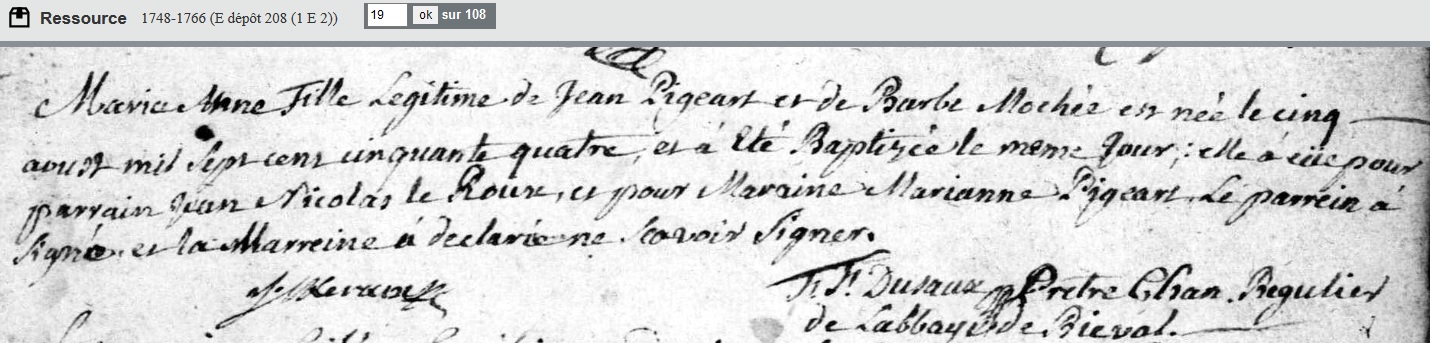 Ressource 1748-1766 (E dépôt 208 (1 E 2)) 19 ok sur 108
Marie Anne Fille Legitime de Jean Pigeart et de Barbe Mochée est née le cinq
aoust mil Sept cent cinquante quatre, et á Eté Baptizée le meme Jour; elle á eüe pour
parrain Jean Nicolas le Roux, et pour Maraine Marianne Pigeart. Le parrein á
Signé, et la Marreine á declarée ne Scavoir Signer.
F. F. Dusaux Pretre Chan. Regulier
de Labbaye de Rieval.